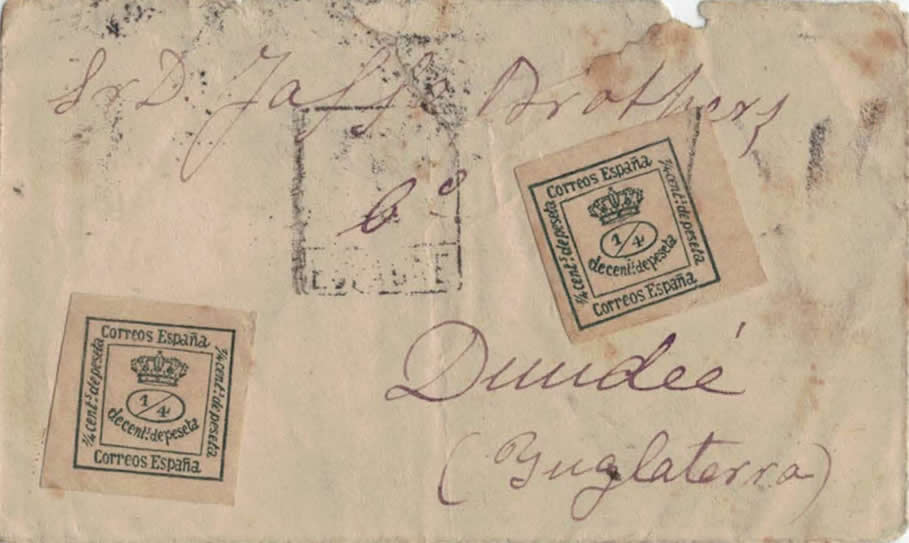 Sr D. Jaffe Brothers
6º
Correos España
1/4 cent.s de peseta
1/4 cent.s de peseta
1/4
de cent.s de peseta
Correos España
Dundeé
(Inglaterra)
Correos España
1/4 cent.s de peseta
1/4 cent.s de peseta
1/4
de cent.s de peseta
Correos España